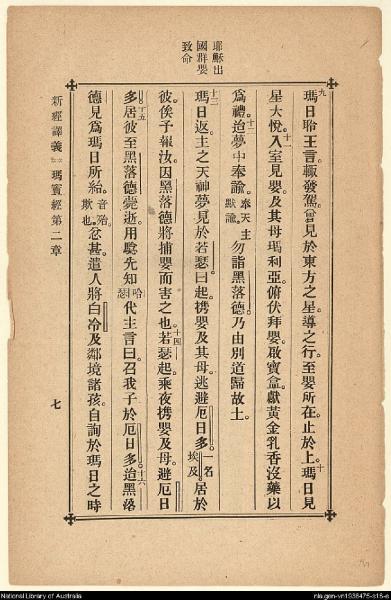 耶穌出
國群嬰
致命
九瑪日聆王言。輙發駕。曾見於東方之星。導之行。至嬰所在。止於上。十瑪日見
星大悅。十一入室見嬰。及其母瑪利亞。俯伏拜嬰。啟寶盒。獻黃金乳香沒藥以
爲禮。十二迨夢中奉諭。奉天主默諭。勿詣黑落德。乃由別道歸故土。
十三瑪日返。主之天神夢見於若瑟曰。起。携嬰及其母。逃避厄日多。一名埃及。居於
彼。俟予報汝。因黑落德將捕嬰而害之也。十四若瑟起。乘夜携嬰及母。避厄日
多。十五居彼至黑落德薨逝。用騐先知哈瑟代主言曰。召我子於厄日多。十六迨黑落
德見爲瑪日所紿。音殆。欺也。忿甚。遣人將白冷及鄰境諸孩。自詢於瑪日之時
新經譯義 瑪竇經第二章 七
National Library of Australia
nla.gen-vn1938475-s16-e